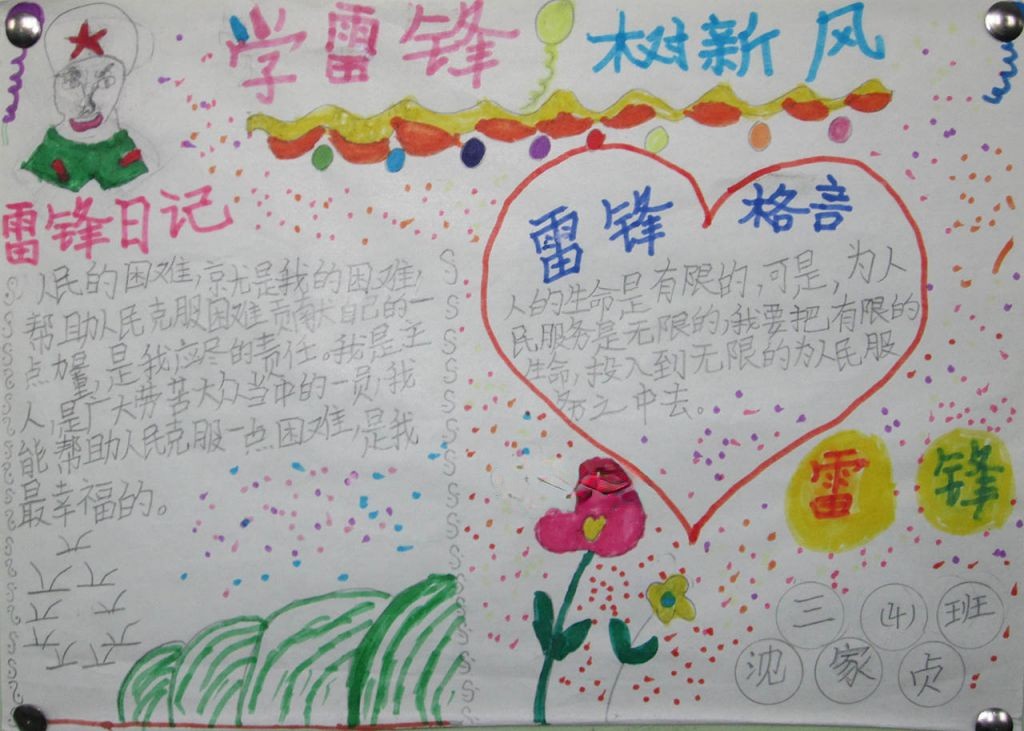 学雷锋 树新风
雷锋日记
人民的困难,就是我的困难,
帮助人民克服困难贡献自己的一
点力量,是我应尽的责任。我是主
人,是广大劳苦大众当中的一员,我
能帮助人民克服一点困难,是我
最幸福的。
雷锋 格言
人的生命是有限的,可是,为人
民服务是无限的,我要把有限的
生命,投入到无限的为人民服
务之中去。
雷锋
三(4)班
沈家贞